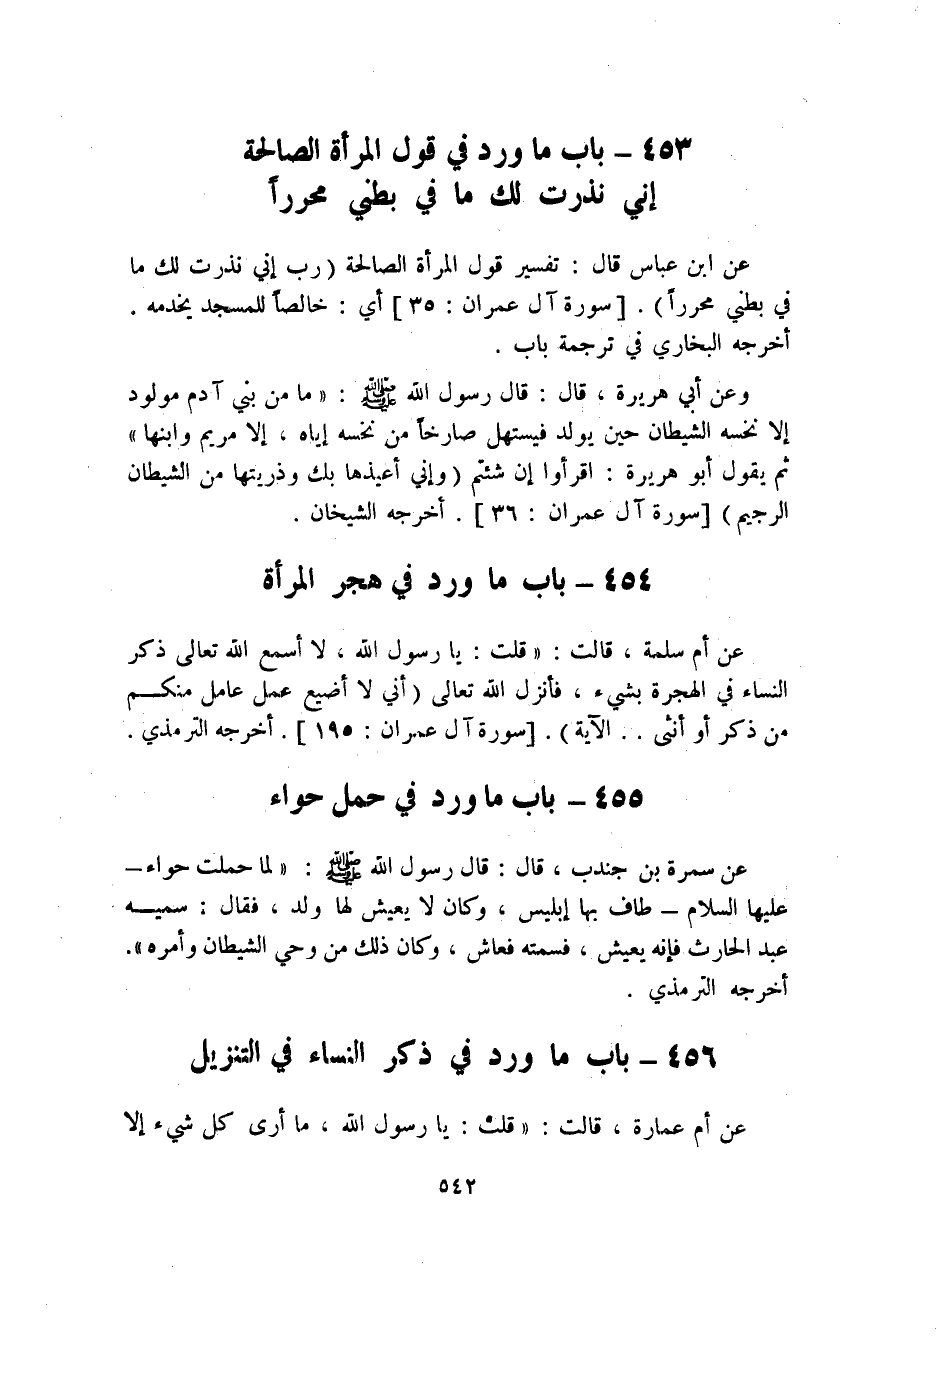 ٤٥٣ – باب ما ورد في قول المرأة الصالحة
إني نذرت لك ما في بطني محرراً
عن ابن عباس قال : تفسير قول المرأة الصالحة ( رب إني نذرت لك ما
في بطني محرراً ) . [ سورة آل عمران : ٣٥ ] أي : خالصاً للمسجد يخدمه .
أخرجه البخاري في ترجمة باب .
وعن أبي هريرة ، قال : قال رسول الله ﷺ : « ما من بني آدم مولود
إلا نخسه الشيطان حين يولد فيستهل صارخاً من نخسه إياه ، إلا مريم وابنها »
ثم يقول أبو هريرة : اقرأوا إن شئتم ( وإني أعيذها بك وذريتها من الشيطان
الرجيم ) [ سورة آل عمران : ٣٦ ] . أخرجه الشيخان .
٤٥٤ – باب ما ورد في هجر المرأة
عن أم سلمة ، قالت : « قلت : يا رسول الله ، لا أسمع الله تعالى ذكر
النساء في الهجرة بشيء ، فأنزل الله تعالى ( أني لا أضيع عمل عامل منكم
من ذكر أو أنثى . . الآية ) . [ سورة آل عمران : ١٩٥ ] . أخرجه الترمذي .
٤٥٥ – باب ما ورد في حمل حواء
عن سمرة بن جندب ، قال : قال رسول الله ﷺ : « لما حملت حواء –
عليها السلام – طاف بها إبليس ، وكان لا يعيش لها ولد ، فقال : سميه
عبد الحارث فإنه يعيش ، فسمته فعاش ، وكان ذلك من وحي الشيطان وأمره ».
أخرجه الترمذي .
٤٥٦ – باب ما ورد في ذكر النساء في التنزيل
عن أم عمارة ، قالت : « قلت : يا رسول الله ، ما أرى كل شيء إلا
٥٤٢